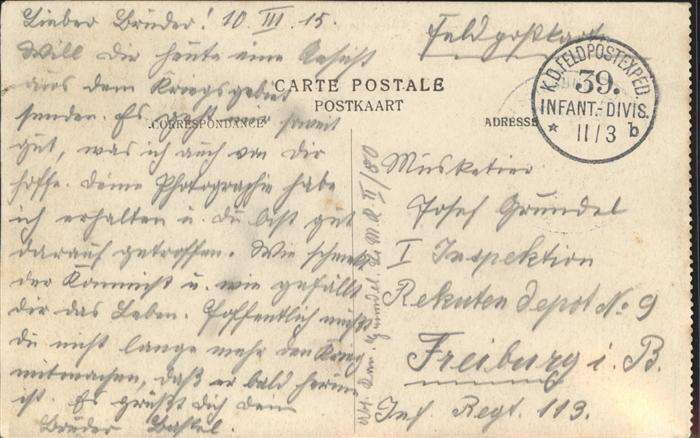 Lieber Brüder! 10 III. 15.
Will Dir heute eine Ansicht
aus dem Kriegsgebiet
senden. Es geht mir soweit
gut, was ich auch von Dir
hoffe. Deine Photographie habe
ich erhalten u. du bist gut
darauf getroffen. Wie schmeckt
der Kommiss u. wie gefällt
dir das Leben. Hoffentlich mußt
du nicht lange mehr den Krieg
mitmachen, daß er bald herum
ist. Es grüßt Dich dein
Brüder
CARTE POSTALE
POSTKAART
CORRESPONDANCE
ADRESSE
Feldpostkarte
K.D. FELDPOSTEXPED.
39.
INFANT.-DIVIS.
* 11/3 b
Musketier
Josef Gründel
I Inspektion
Rekutendepot No 9
Freiburg i. B.
Inf Regt. 113.